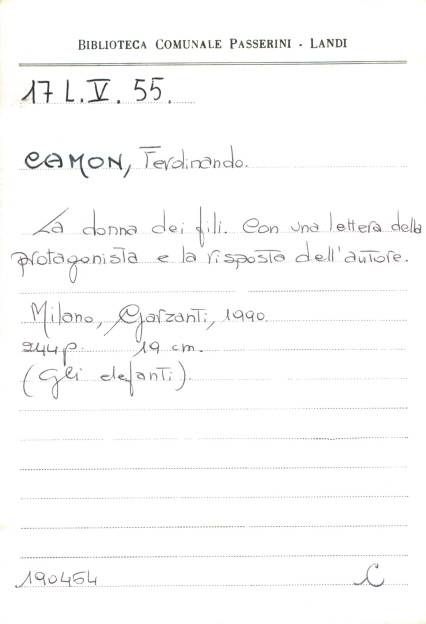 BIBLIOTECA COMUNALE PASSERINI - LANDI
17 L.V. 55.
CAMON, Ferdinando.
La donna dei fili. Con una lettera della
protagonista e la risposta dell'autore.
Milano, Garzanti, 1990.
244 p. 19 cm.
(Gli elefanti).
190454 C